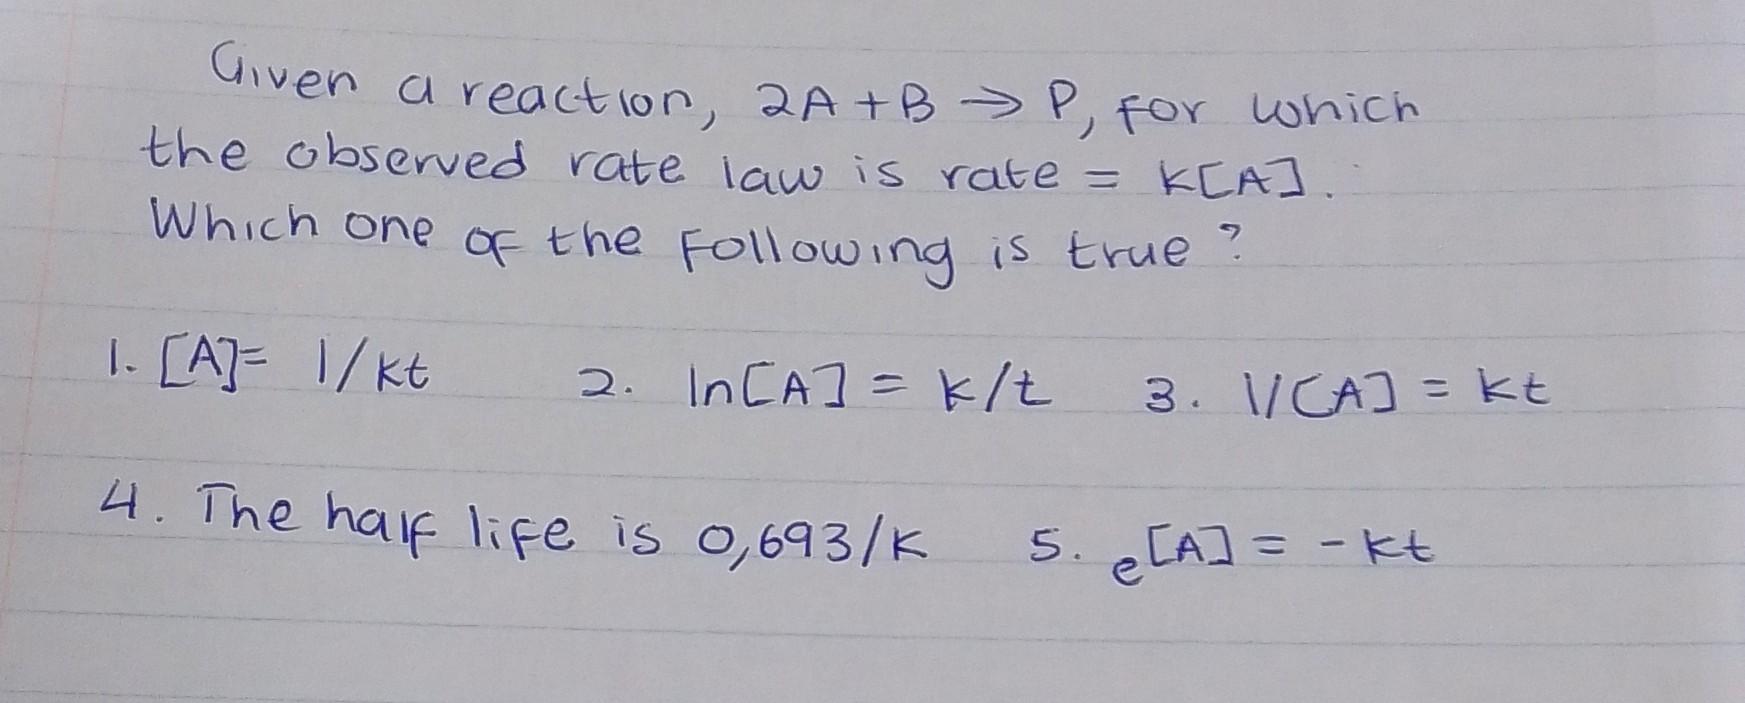 Given a reaction, 2A + B → P, for which
the observed rate law is rate = K[A].
Which one of the following is true?
1. [A]= 1/kt 2. ln[A] = k/t 3. 1/[A] = kt
4. The half life is 0,693/K 5. e[A] = -kt